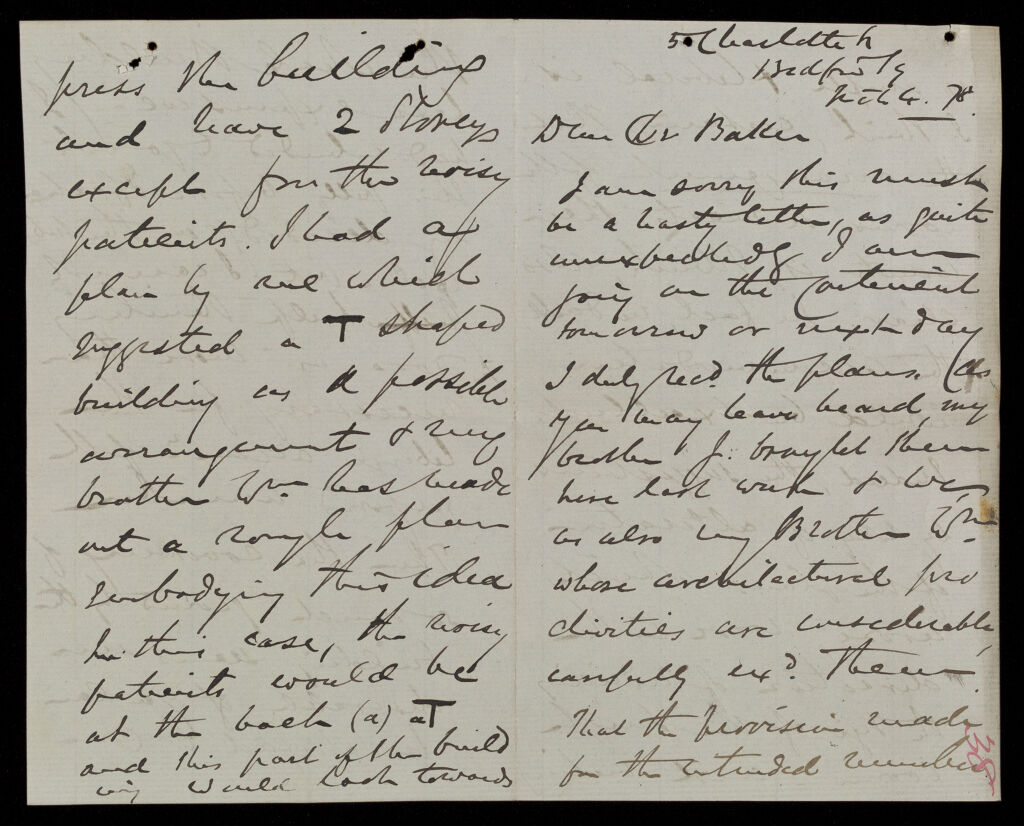 5 Charlotte St
Bedford Sq
4. 78
Dear Dr Baker
I am sorry this must
be a hasty letter, as quite
unexpectedly I am
going on the Continent
tomorrow or next day
I duly recd. the plans. (As
you may have heard, my
brother J. brought them
here last week & we,
as also my Brother Wm.
whose architectural pro
clivities are considerable,
carefully exd. them.
That the provision made
for the intended number
38
press the building
and have 2 Storeys
except for the noisy
patients. I had a
plan by me which
suggested a T shaped
building as a possible
arrangement & my
brother Wm has made
out a rough plan
embodying this idea
In this case, the noisy
patients would be
at the back (a) aT
and this part of the build
ing would look towards